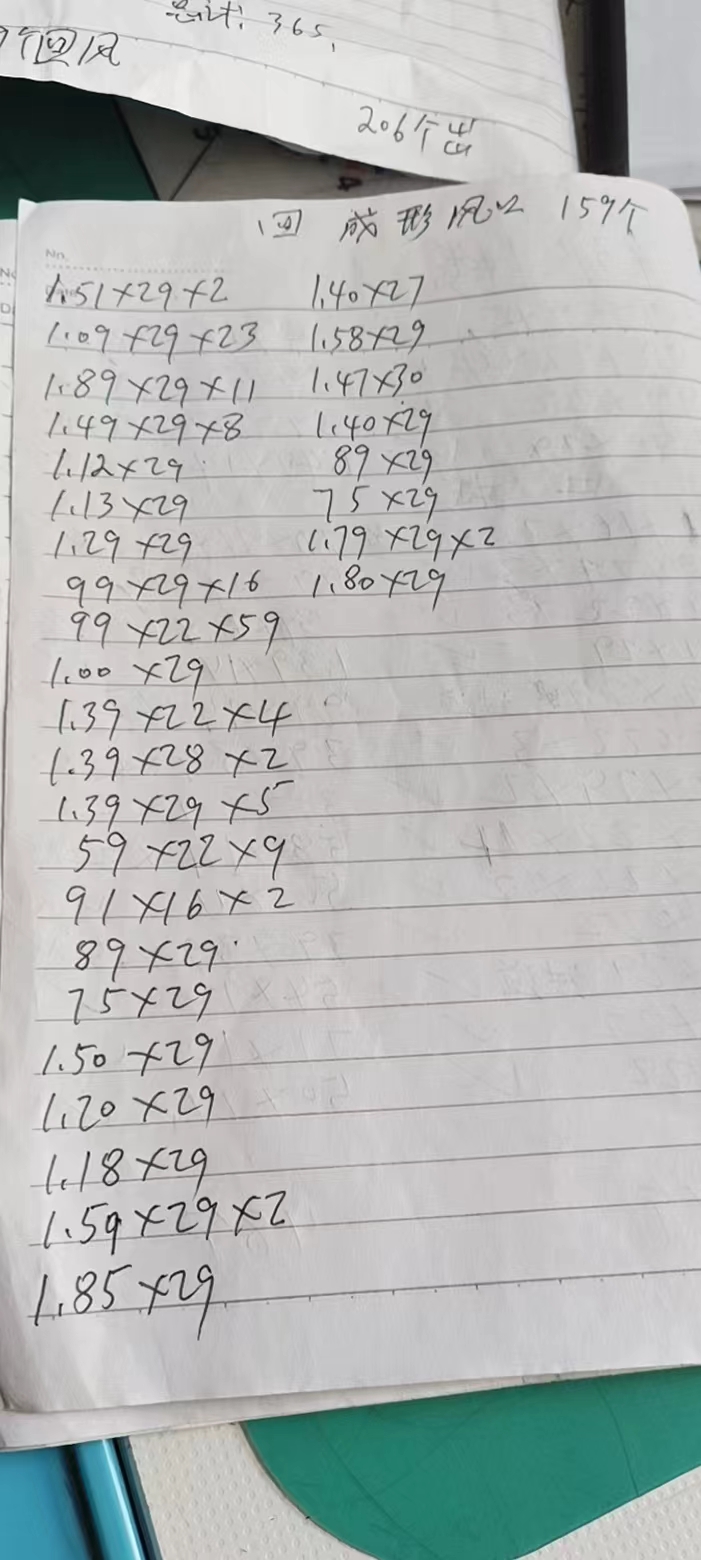 总计: 365,
回风
206个出
回 成形风口 159个
No.
1.51×29×2
1.09×29×23
1.89×29×11
1.49×29×8
1.12×29
1.13×29
1.29×29
99×29×16
99×22×59
1.00×29
1.39×22×4
1.39×28×2
1.39×29×5
59×22×9
91×16×2
89×29
75×29
1.50×29
1.20×29
1.18×29
1.59×29×2
1.85×29
1.40×27
1.58×29
1.47×30
1.40×29
89×29
75×29
1.79×29×2
1.80×29